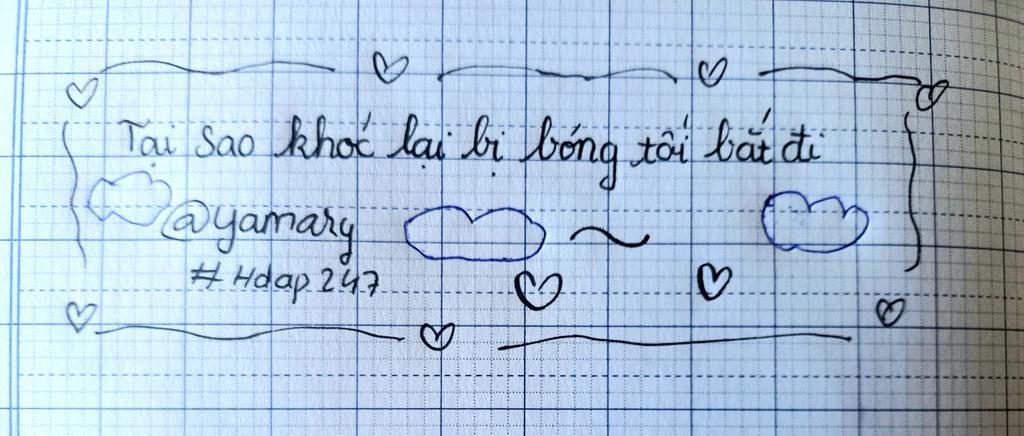 Tại Sao khóc lại bị bóng tối bắt đi
@yamary
#Hdap247